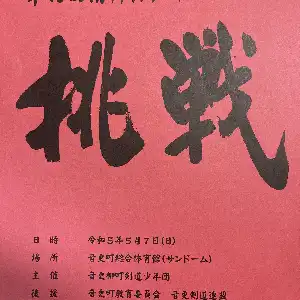 挑戦
日時 令和5年5月7日(日)
場所 音更町総合体育館(サンドーム)
主催 音更柳町剣道少年団
後援 音更町教育委員会 音更剣道連盟